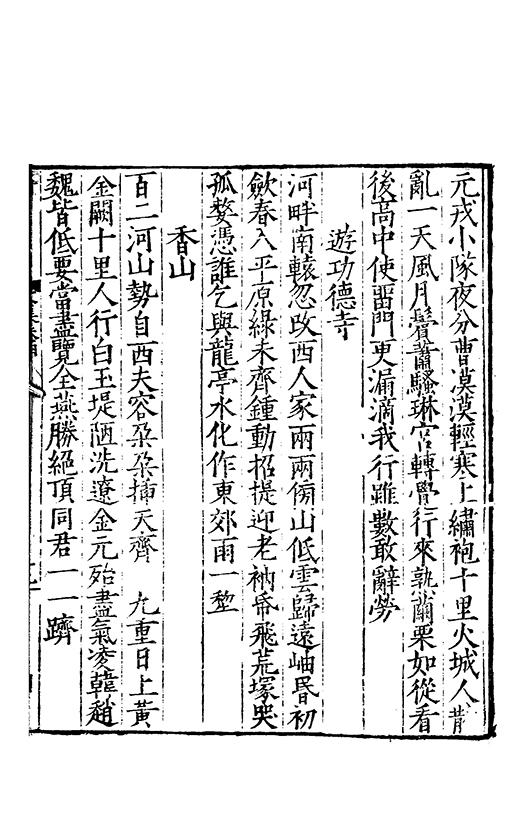 元戎小隊夜分曹漠漠輕寒上繡袍十里火城人散
亂一天風月鬢蕭騷琳宮轉覺行來熟繭栗如從看
後高中使畱門更漏滴我行雖數敢辭勞
遊功德寺
河畔南轅忽改西人家兩兩傍山低雲歸遠岫昏初
歛春入平原綠未齊鍾動招提迎老衲帋飛荒塚哭
孤嫠憑誰乞與龍亭水化作東郊雨一犂
香山
百二河山勢自西夫容朶朶揷天齊　九重日上黃
金闕十里人行白玉堤陋洗遼金元殆盡氣凌韓趙
魏皆低要當盡覽全燕勝絕頂同君一一躋